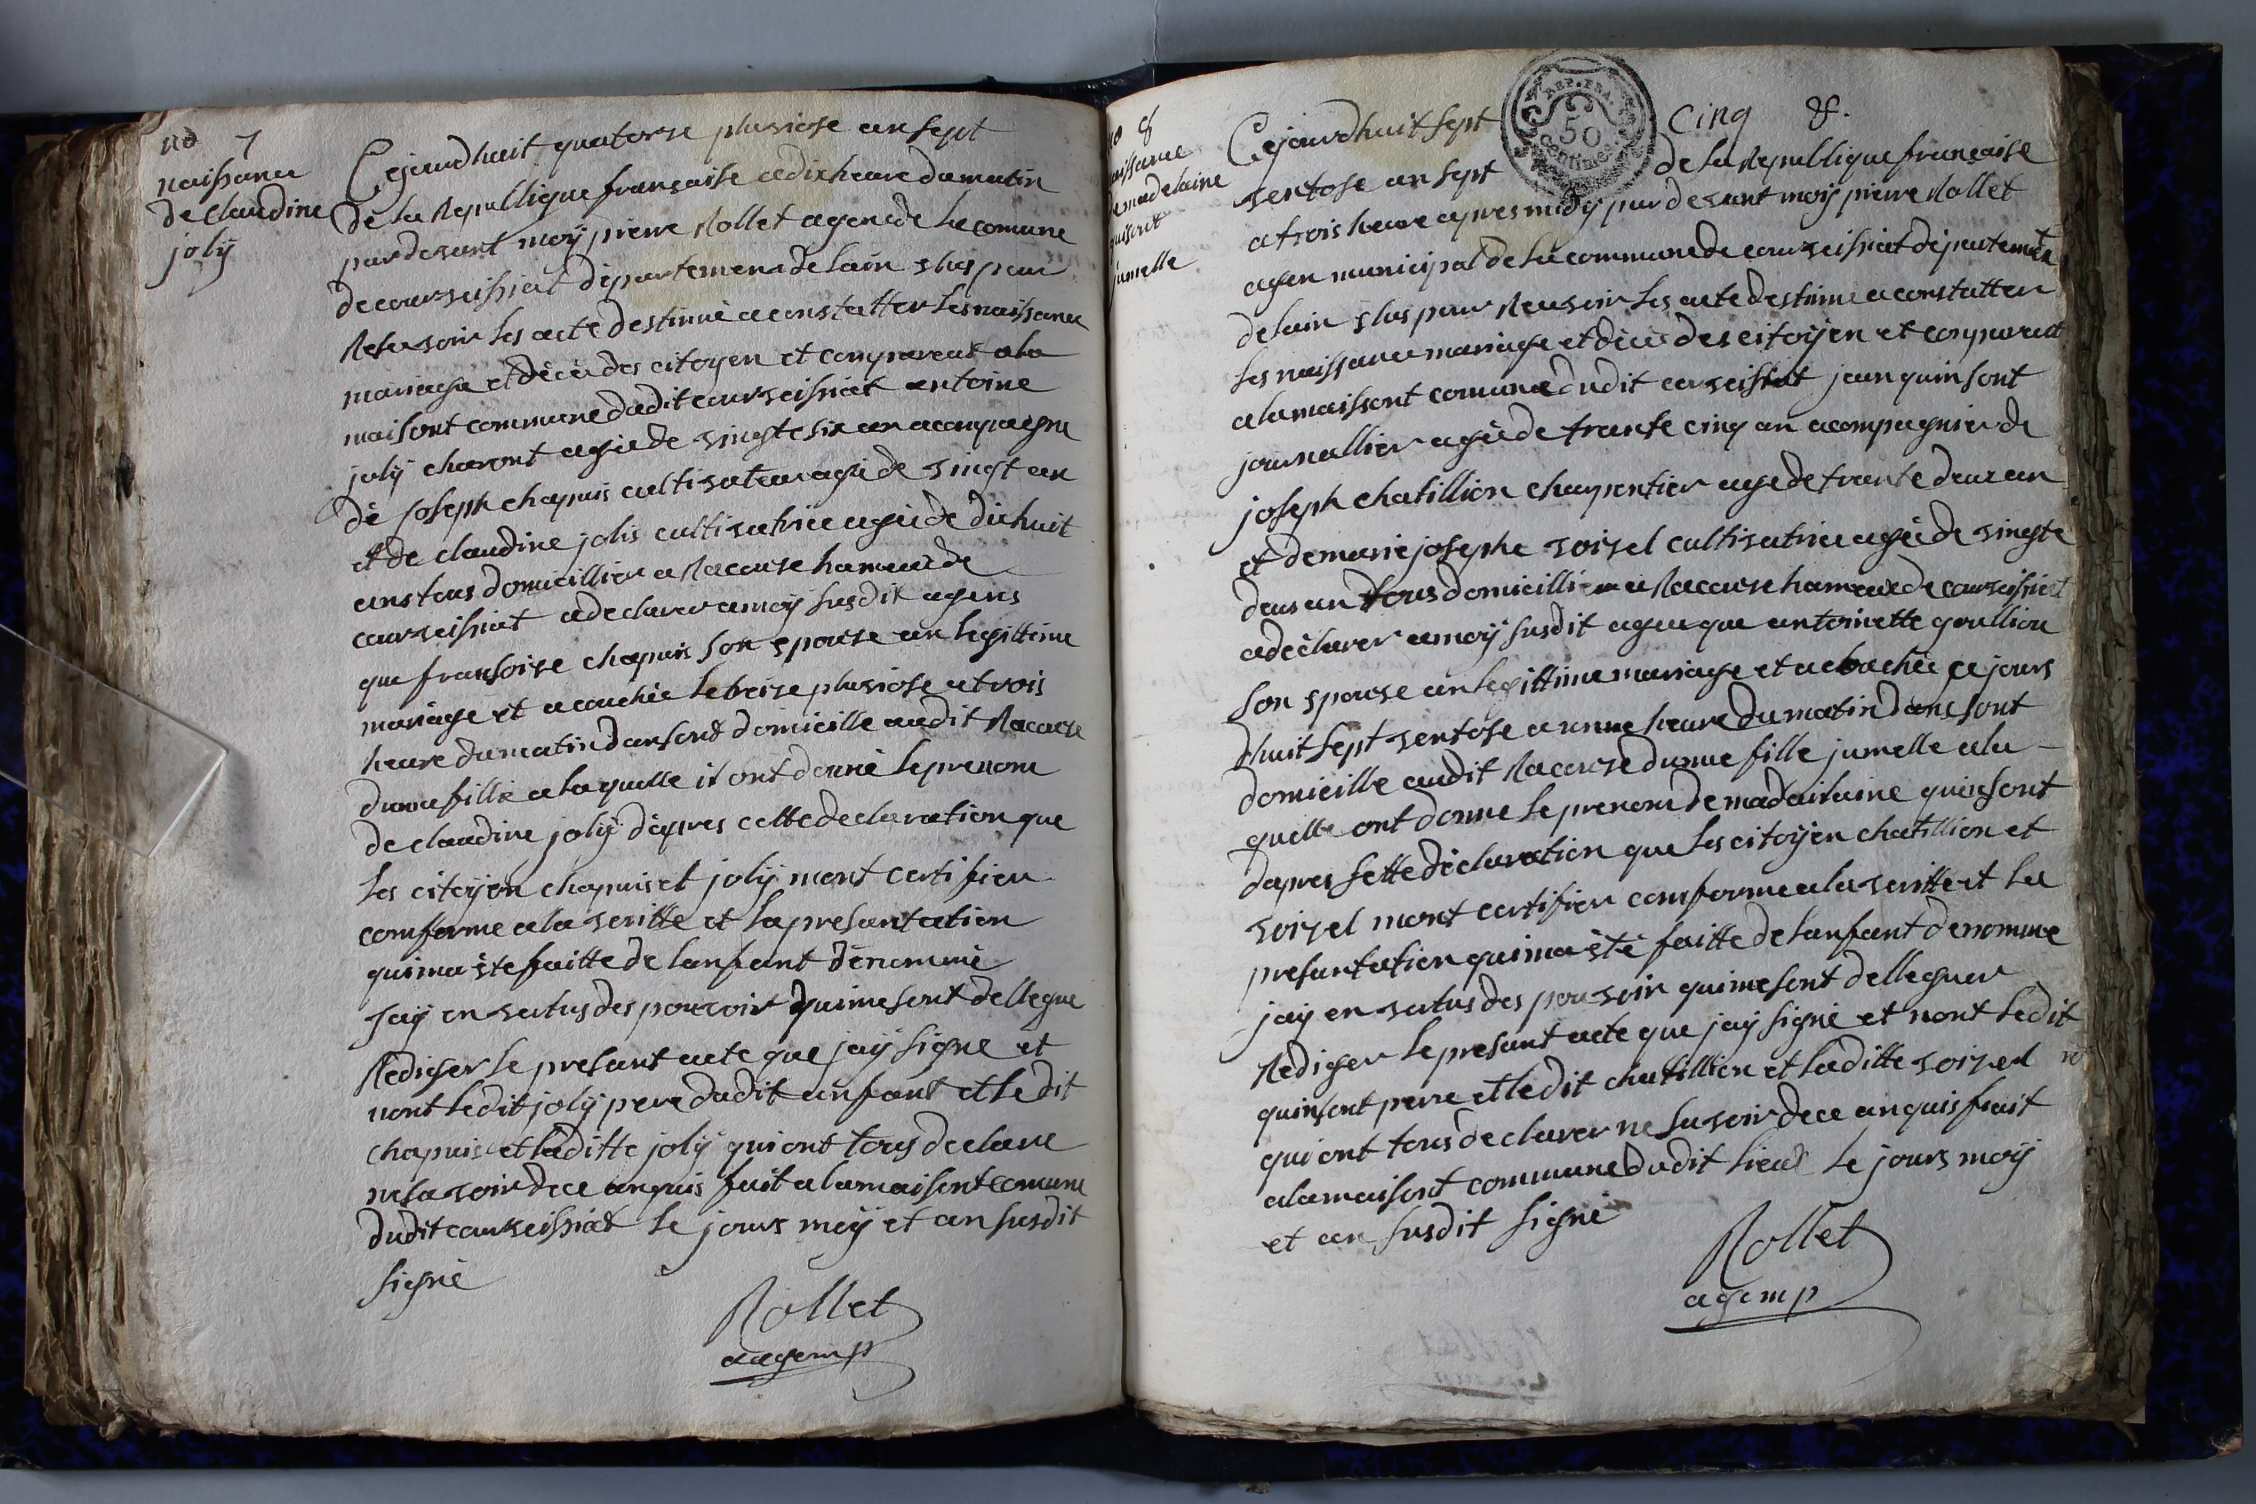 no 7
naissance
de Claudine
jolij
Cejourdhuit quatorse pluviose an sept
de la Republlique française a dix heure du matin
par devant moij pierre Rollet agent de la comune
de courveissiat departement de lain elus pour
Resevoir les acte destinné a constatter les naissance
mariage et décès des citoyen et comparent a la
maisont commune dudit courveissiat antoine
jolij charont agée de vingte six an acompagne
dè Joseph chapuis cultivateur agé de vingt an
et de claudine jolis cultivatrice agée de dix huit
ans tous domicillier a Racouse hameau de
courveissiat a declarer a moij susdit agens
que fransoise chapuis son epouse an legittime
mariage et acouchée le treise pluviose a trois
heure du matin dan sont domicille audit Racouse
dune fille a laquelle il ont donné le prenom
de claudine jolij dapres cette declaration que
les citoyen chapuis et jolij mont certifier
comforme a la veritte et la presantation
qui ma ète faitte de lanfant dénommé
jaij en vertus des pouvoir qui me sont dellegue
Rediger le presant acte que jaij signe et
nont ledit jolij pere dudit anfant et le dit
chapuis et laditte jolij qui ont tous declare
ne savoir de ce anquis fait a la maisont comune
dudit courveissiat le jours moij et an susdit
signé
Rollet
agemp
no 8
naissance
de madelaine
quisont
jumelle
REP. FRA.
50
Centimes
Cinq &.
Cejourdhuit sept
ventose an sept de la Republlique française
a trois heure apres midij par devant moij pierre Rollet
agen municipal de la commune de courveissiat departement
de lain elus pour Resevoir les acte destinne a constatter
les naissance mariage et décès des citoijen et comparent
a la maissont comune dudit corveissiat jean quinsont
journallier agée de trante cinq an acompagnier de
joseph chatillion charpentier age de trante deux an
et de marie josephe voisel cultivatrice agée de vingte
deus an tous domicillier a Racouse hameau de courveissiat
a déclarer a moij susdit agen que antoinette goullion
son epouse an legittime mariage et acouchée ce jours
dhuit sept ventose a unne heure du matin dans sont
domicille audit Racouse dunne fille jumelle a la
quelle ont donne le prenom de madailaine quinsont
dapres sette déclaration que les citoijen chatillion et
voisel mont certifier comforme a la veritte et la
presantation qui ma èté faitte de lanfant denomme
jaij en vertus des pouvoir qui me sont delleguer
Rediger le presant acte que jaij signé et nont ledit
quinsont perre et ledit chatillion et laditte voisel
qui ont tous declarer ne savoir de ce anquis frait
a la maisont commune dudit lieux le jours moij
et an susdit signé
Rollet
agemp